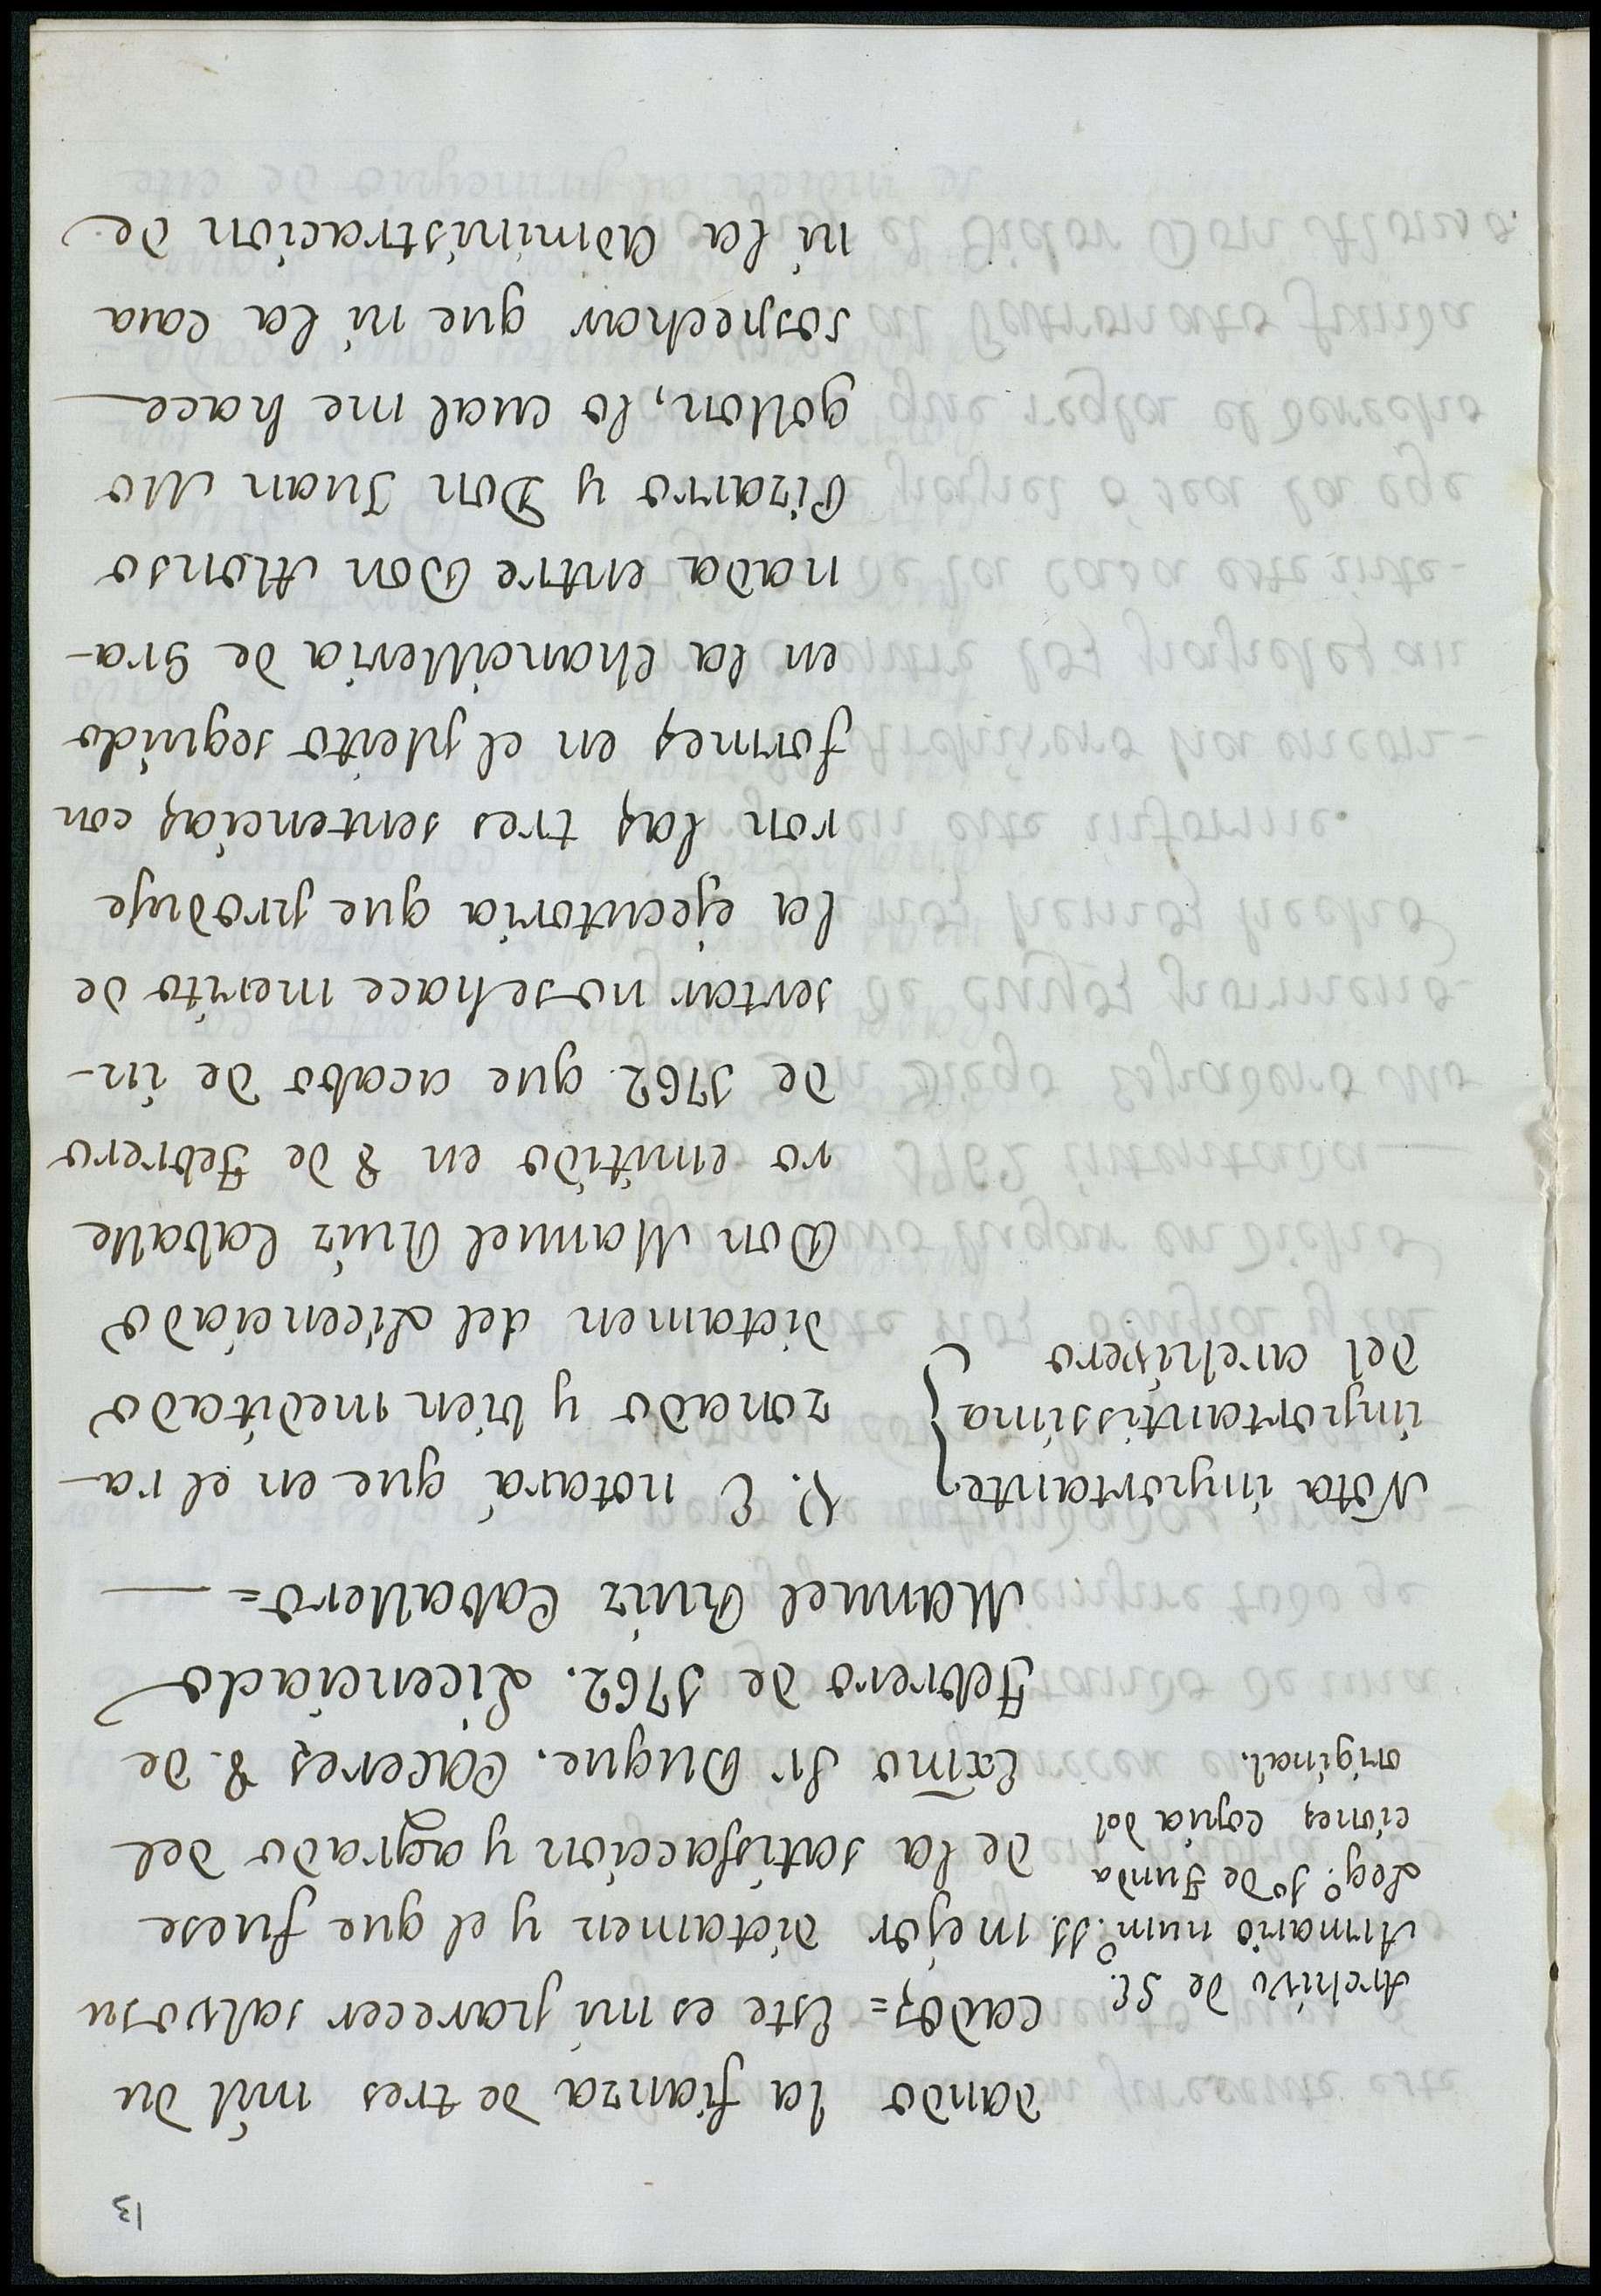 13
dando la fianza de tres mil du
cados = Este es mi parecer salvo su
mejor dictamen y el que fuese
de la satisfaccion y agrado del
Exmo Sr Duque. Caceres 8. de
Febrero de 1762. Licenciado
Manuel Ruiz Caballero =
Archivo de SE.
Armario num.º 11.
Leg.º 1º de Funda
ciones copia del
original.
V. E notará que en el ra-
zonado y bien meditado
dictamen del Licenciado
Don Manuel Ruiz Caballe
ro emitido en 8 de Febrero
de 1762 que acabo de in-
sertar no se hace merito de
la ejecutoria que produge
ron las tres sentencias con
formes en el pleito seguido
en la Chancilleria de Gra-
nada entre Don Alonso
Pizarro y Don Juan Mo
gollon, lo cual me hace
sospechar que ni la casa
ni la administracion de
Nota importante
importantissima
del archivero